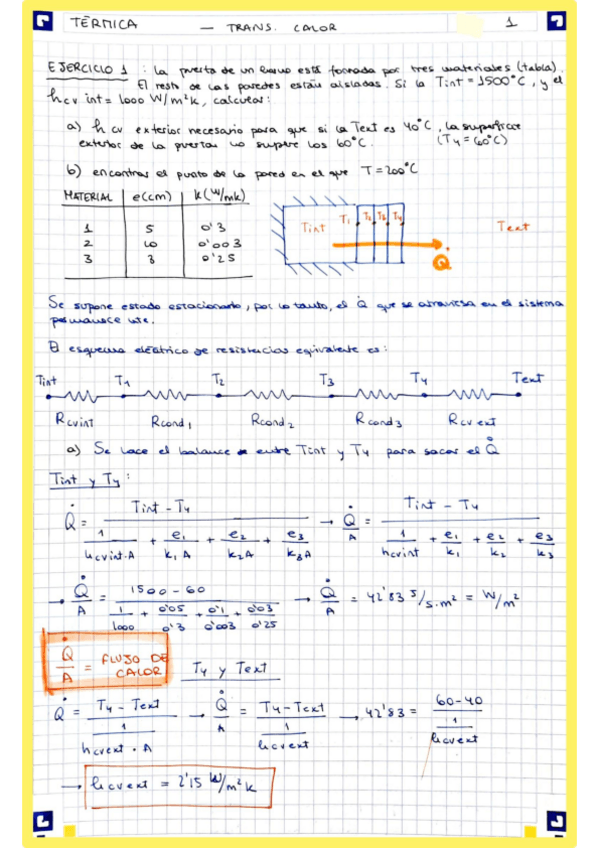 TÉRMICA — TRANS. CALOR 1
EJERCICIO 1 : La puerta de un horno está formada por tres materiales (tabla).
El resto de las paredes están aisladas. Si la Tint = 1500°C, y el
hcv int = 1000 W/m²k, calcular:
a) h cv exterior necesario para que si la Text es 40°C, la superficie
exterior de la puerta no supere los 60°C. (T4 = 60°C)
b) encontrar el punto de la pared en el que T = 200°C
MATERIAL e(cm) k(W/mk)
1 5 0'3
2 10 0'003
3 3 0'25
Tint T1 T2 T3 T4 Text
Q̇
Se supone estado estacionario, por lo tanto, el Q̇ que se atraviesa en el sistema
permanece cte.
El esquema eléctrico de resistencias equivalente es:
Tint T1 T2 T3 T4 Text
Rcvint Rcond1 Rcond2 Rcond3 Rcv ext
a) Se hace el balance entre Tint y T4 para sacar el Q̇
Tint y T4 :
Q̇ = Tint - T4 / (1/hcvint.A + e1/k1 A + e2/k2A + e3/k3A) → Q̇/A = Tint - T4 / (1/hcvint + e1/k1 + e2/k2 + e3/k3)
→ Q̇/A = 1500 - 60 / (1/1000 + 0'05/0'3 + 0'1/0'003 + 0'03/0'25) → Q̇/A = 42'83 J/s.m² = W/m²
Q̇/A = FLUJO DE CALOR
T4 y Text
Q̇ = T4 - Text / (1/hcvext . A) → Q̇/A = T4 - Text / (1/hcvext) → 42'83 = 60-40 / (1/hcvext)
→ hcvext = 2'15 W/m²k